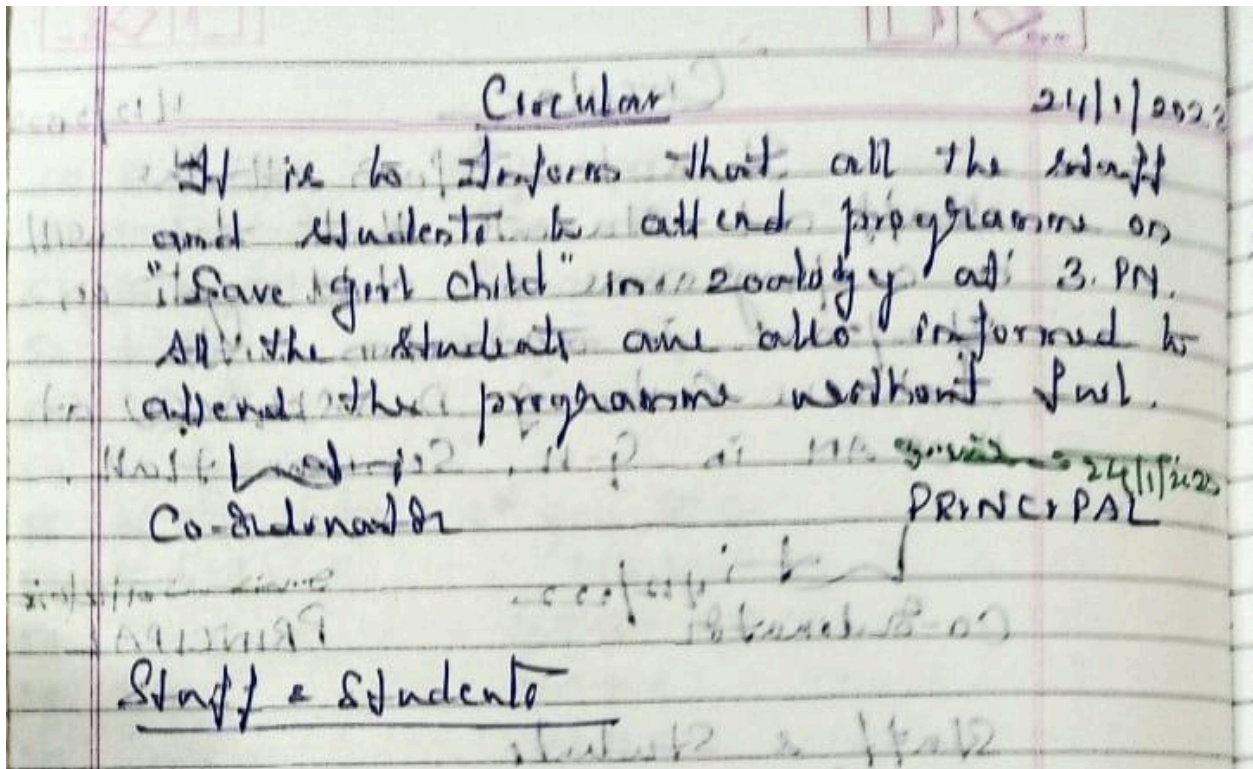 Circular 24/1/2022
It is to Inform that all the staff
and students to attend programme on
"Save girl child" in zoology at 3. PM.
All the students are also informed to
attend the programme without fail.
24/1/2022
Co-ordinator PRINCIPAL
Staff & Students